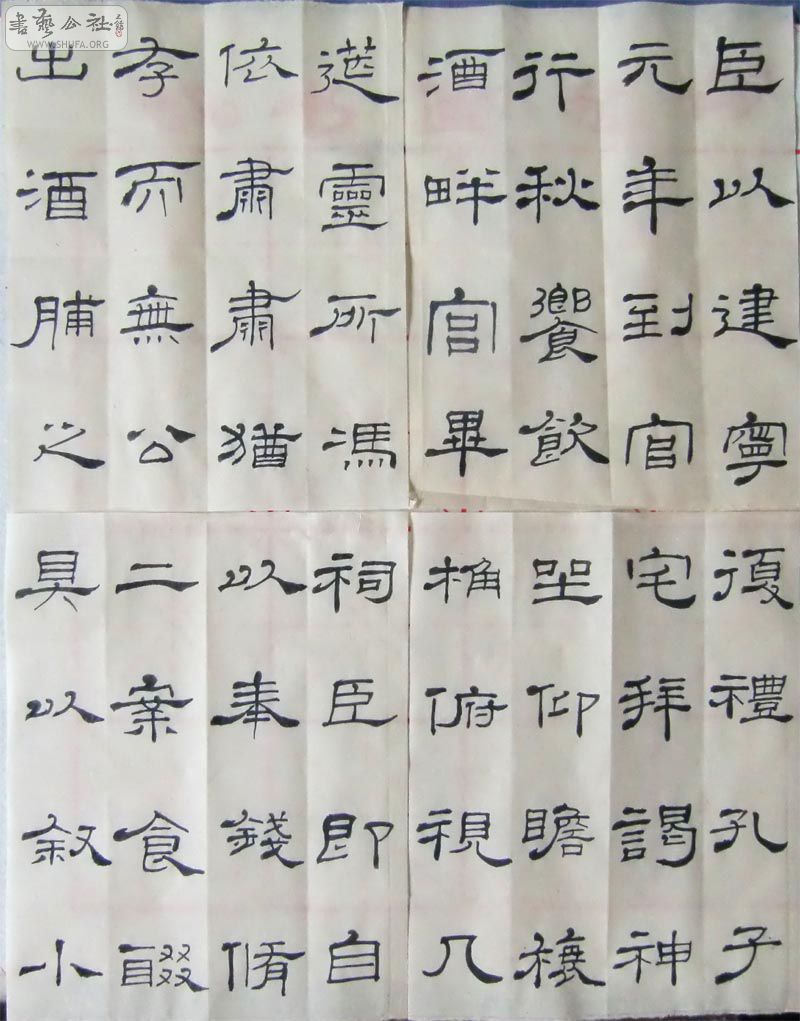 書藝公社
WWW.SHUFA.ORG
臣以建寧
元年到官
行秋饗飲
酒畔宮畢
復禮孔子
宅拜謁神
坐仰瞻榱
桷俯視几
筵靈所馮
依肅肅猶
存而無公
出酒脯之
祠臣即自
以奉錢脩
二案食醊
具以叙小